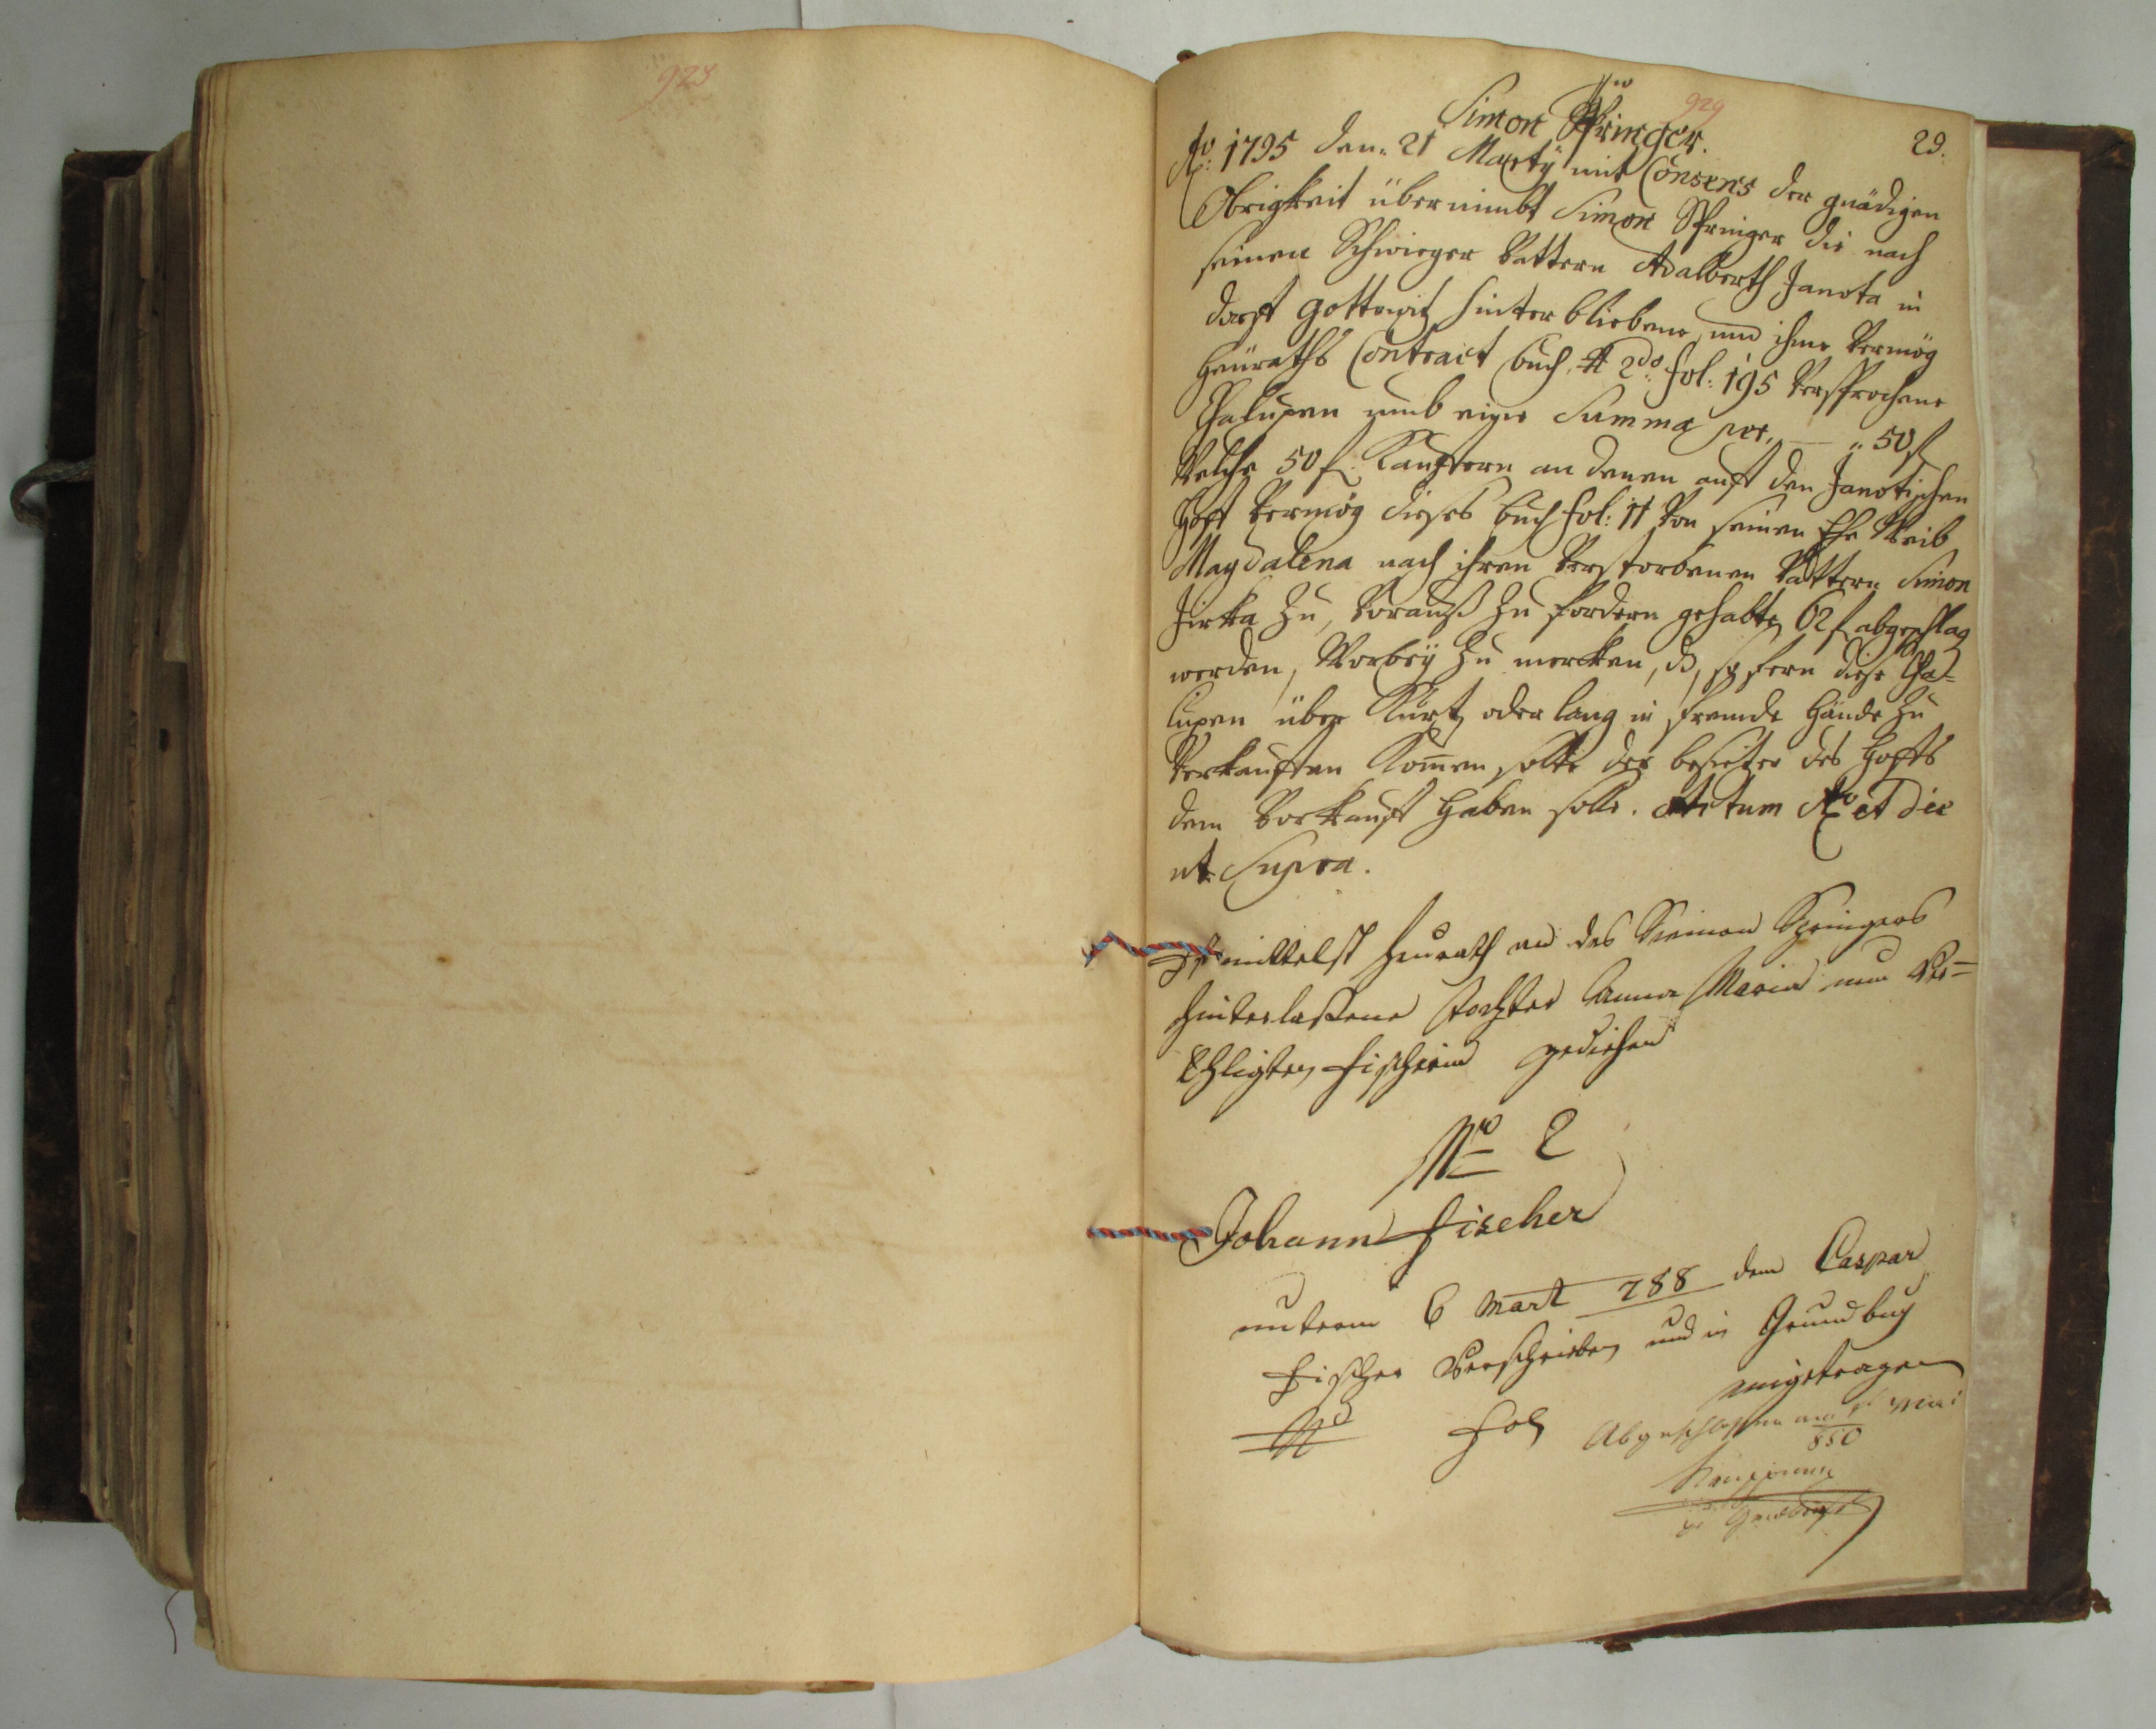 923
929
29.
Simon Springer.
Ao: 1795 den: 21 Marty mit Consens der gnädigen
Obrigkeit übernimbt Simon Springer die nach
seinen Schwieger Vattern Adalberth Janota in
dorf gottowitz hinterbliebene, und ihme Vermög
Heuraths Contract buch 2do fol: 195 Versprochene
Chalupen umb eine Summa per, — „ 50 f
Welche 50 f. Kauffern an denen auf den Janotischen
Hoff Vermög dieses buch fol: 11 Von seinen Ehe Weib
Magdalena nach ihren Verstorbenen Vattern Simon
Jirka zu, Vorauß zu fordern gehabte 62 f abgeschlag
werden, Worbey zu mercken, d, so fern diese Cha-
lupen über Kurtz oder lang in fremde Hände zu
Verkauffen Kommen solte der besietzer des Hoffs
dem Vorkauff haben solle. Actum Ao et die
ut Supra.
Ist mittelst Heurath an des Siemon Springers
hinterlassene Tochter Anna Maria nun Ver=
Ehligten Fischerin gediehen
No 2
Johann Fischer
unterm 6 Mart 788 dem Caspar
Fischer Verschrieben und in Grundbuch
eingetragen
No fol
Abgeschlossen am Mai
850